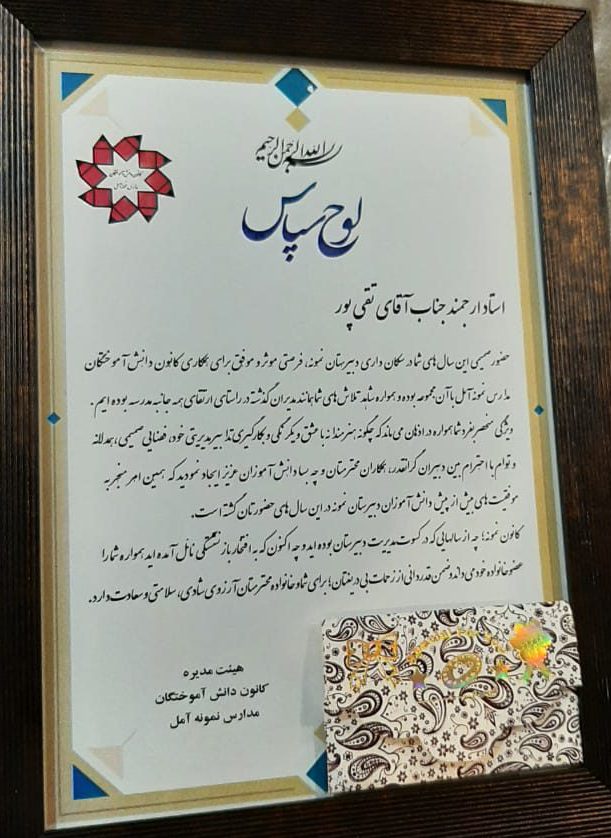 بسم الله الرحمن الرحیم
کانون دانش آموختگان
مدارس نمونه آمل
لوح سپاس
استاد ارجمند جناب آقای تقی پور
حضور صمیمی این سال های شما در سکان داری دبیرستان نمونه، فرصتی موثر و موفق برای همکاری کانون دانش آموختگان
مدارس نمونه آمل با آن مجموعه بوده و همواره شاهد تلاش های شما همانند مدیران گذشته در راستای ارتقای همه جانبه مدرسه بوده ایم .
ویژگی منحصر بفرد شما همواره در اذهان می ماند که چگونه هنرمندانه با عشق و یکرنگی و بکارگیری تدابیر مدیریتی خود، فضایی صمیمی، همدلانه
و توام با احترام بین دبیران گرانقدر، همکاران محترمتان و چه بسا دانش آموزان عزیز ایجاد نمودید که همین امر منجر به
موفقیت های بیش از پیش دانش آموزان دبیرستان نمونه در این سال های حضورتان گشته است.
کانون نمونه؛ چه از سالهایی که در کسوت مدیریت دبیرستان بوده اید و چه اکنون که به افتخار بازنشستگی نائل آمده اید همواره شما را
عضو خانواده خود می داند و ضمن قدردانی از زحمات بی دریغتان؛ برای شما و خانواده محترمتان آرزوی شادی، سلامتی و سعادت دارد.
هیئت مدیره
کانون دانش آموختگان
مدارس نمونه آمل